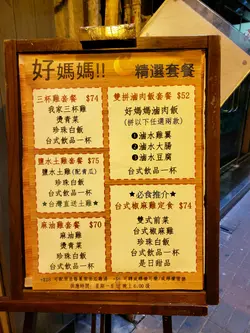 好媽媽!!
精選套餐
三杯雞套餐 $74
我家三杯雞
燙青菜
珍珠白飯
台式飲品一杯
鹽水土雞套餐 $75
鹽水土雞(配青瓜)
珍珠白飯
台式飲品一杯
★台灣直送土雞★
麻油雞套餐 $70
麻油雞
燙青菜
珍珠白飯
台式飲品一杯
雙拼滷肉飯套餐 $52
好媽媽滷肉飯
(拼以下任選兩款)
❶滷水雞翼
❷滷水大腸
❸滷水豆腐
台式飲品一杯
★必食推介★
台式椒麻雞定食 $74
雙式前菜
台式椒麻雞
珍珠白飯
台式飲品一杯
是日甜品